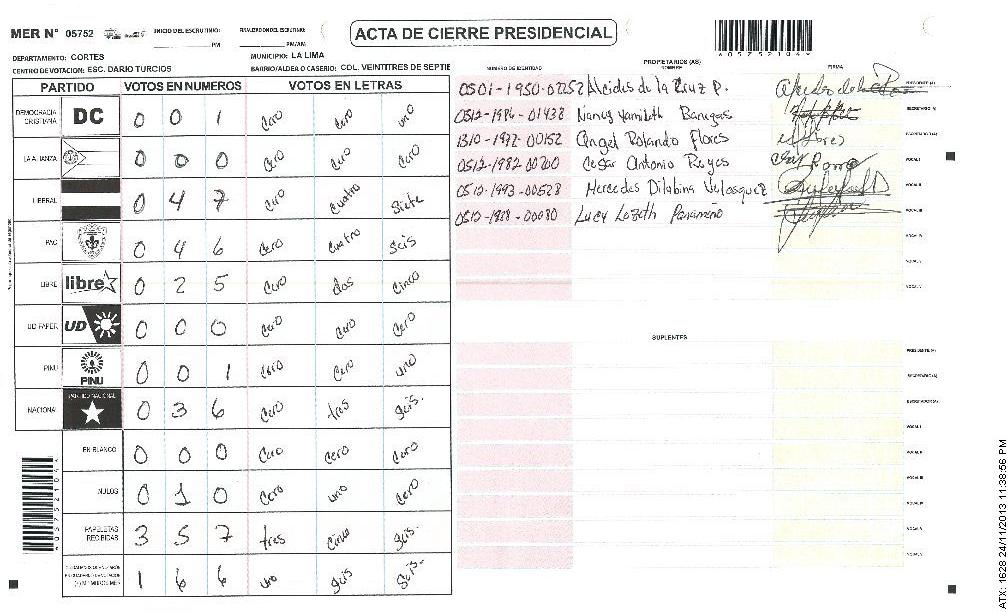 MER N° 05752 INICIO DEL ESCRUTINIO: PM FINALIZACION DEL ESCRUTINIO: PM/AM
ACTA DE CIERRE PRESIDENCIAL
DEPARTAMENTO: CORTES MUNICIPIO: LA LIMA
CENTRO DE VOTACION: ESC. DARIO TURCIOS BARRIO/ALDEA O CASERIO: COL. VENTITRES DE SEPTIE
PARTIDO VOTOS EN NUMEROS VOTOS EN LETRAS
DEMOCRACIA CRISTIANA DC 0 0 1 Cero Cero uno
LA ALIANZA 0 0 0 Cero Cero Cero
LIBERAL 0 4 7 Cero Cuatro Siete
PAC 0 4 6 Cero Cuatro Seis
LIBRE libre 0 2 5 Cero dos Cinco
UD FAPER UD 0 0 0 Cero Cero Cero
PINU PINU 0 0 1 Cero Cero uno
NACIONAL PARTIDO NACIONAL 0 3 6 Cero tres Seis.
EN BLANCO 0 0 0 Cero Cero Cero
NULOS 0 1 0 Cero uno Cero
PAPELETAS RECIBIDAS 3 5 7 tres Cinco Seis.
1 6 6 uno Seis Seis-
NUMERO DE IDENTIDAD PROPIETARIOS (AS) NOMBRE FIRMA
0501-1950-02252 Alcides de la Cruz P. PRESIDENTE (A)
0512-1986-01438 Nancy Yamileth Banegas SECRETARIO (A)
1310-1972-00152 Angel Rolando Flores ESCRUTADOR (A)
0512-1982-00700 Cesar Antonio Reyes VOCAL I
0512-1993-00528 Mercedes Velasquez VOCAL II
Lucy Lizeth VOCAL III
VOCAL IV
VOCAL V
VOCAL V
SUPLENTES
PRESIDENTE (A)
SECRETARIO (A)
ESCRUTADOR (A)
VOCAL I
VOCAL II
VOCAL III
VOCAL IV
VOCAL V
VOCAL V
ATX: 1628 24/11/2013 11:38:56 PM